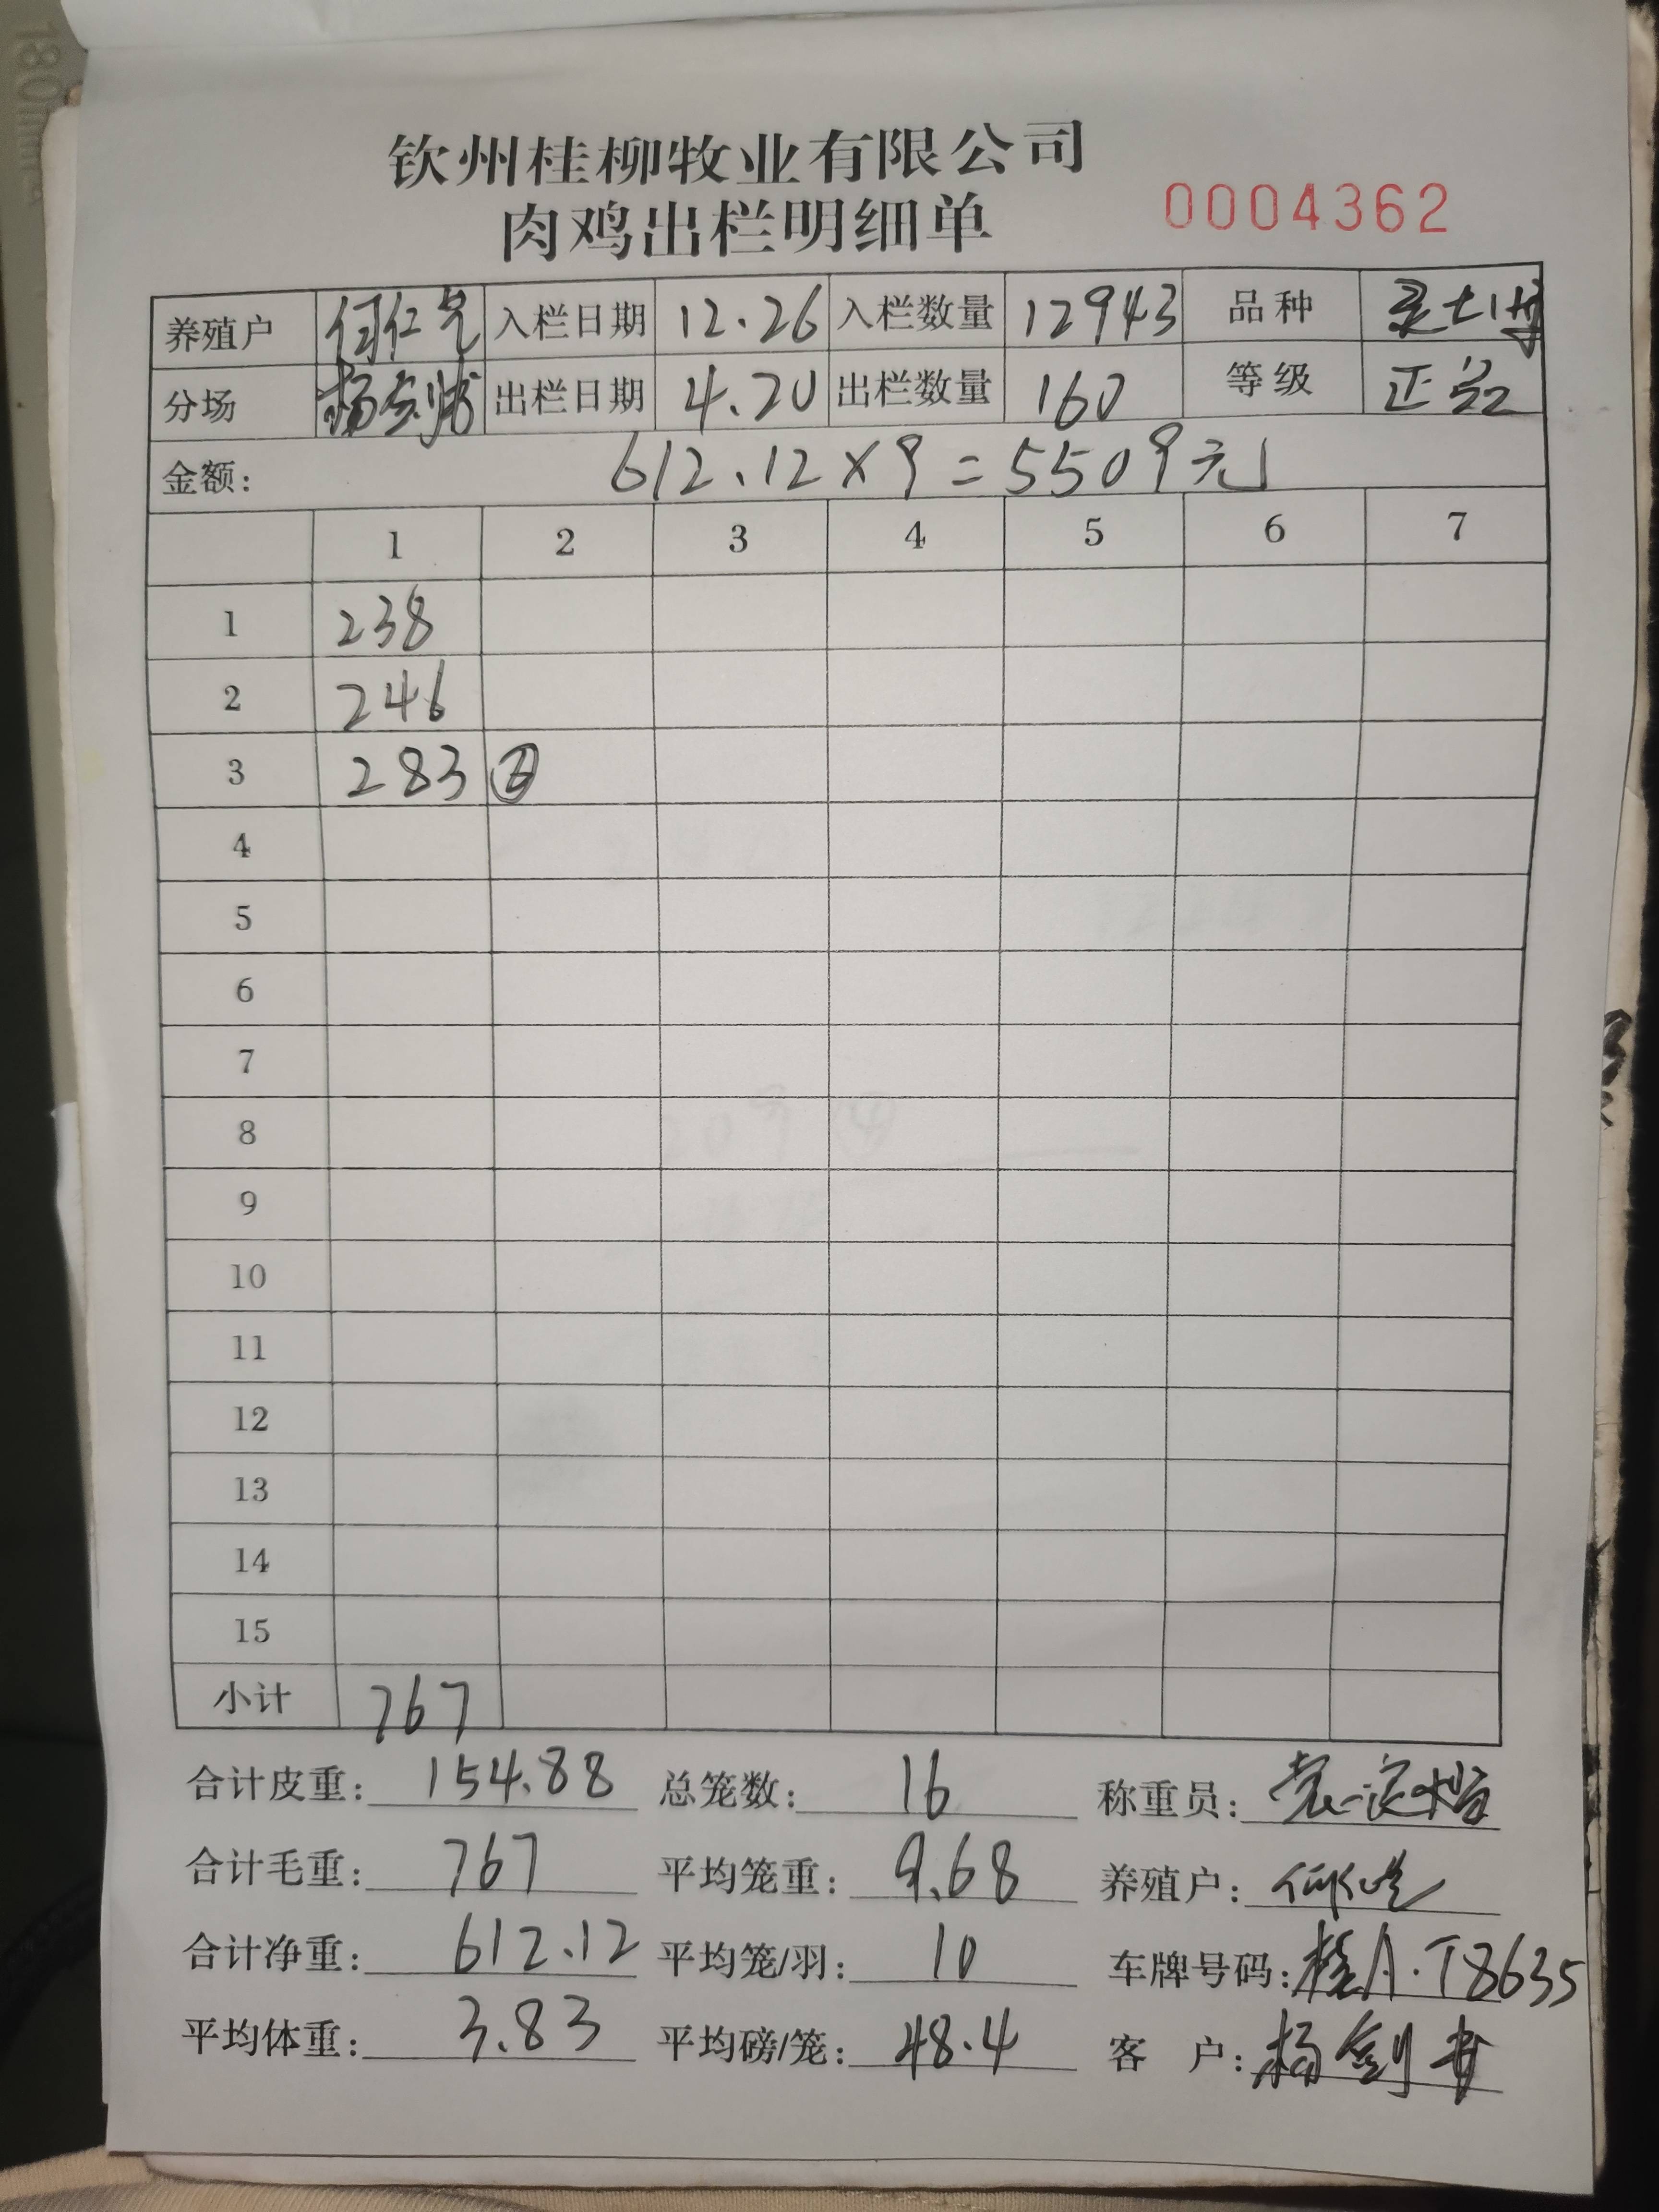 180mm
钦州桂柳牧业有限公司
肉鸡出栏明细单 0004362
养殖户 何仁 入栏日期 12.26 入栏数量 12943 品种
分场 杨剑 出栏日期 4.20 出栏数量 160 等级 正品
金额: 612.12×9=5509元
1 2 3 4 5 6 7
1 238
2 246
3 283
4
5
6
7
8
9
10
11
12
13
14
15
小计 767
合计皮重: 154.88 总笼数: 16 称重员:
合计毛重: 767 平均笼重: 9.68 养殖户: 何仁
合计净重: 612.12 平均笼/羽: 10 车牌号码: 桂A·T8635
平均体重: 3.83 平均磅/笼: 48.4 客 户: 杨剑